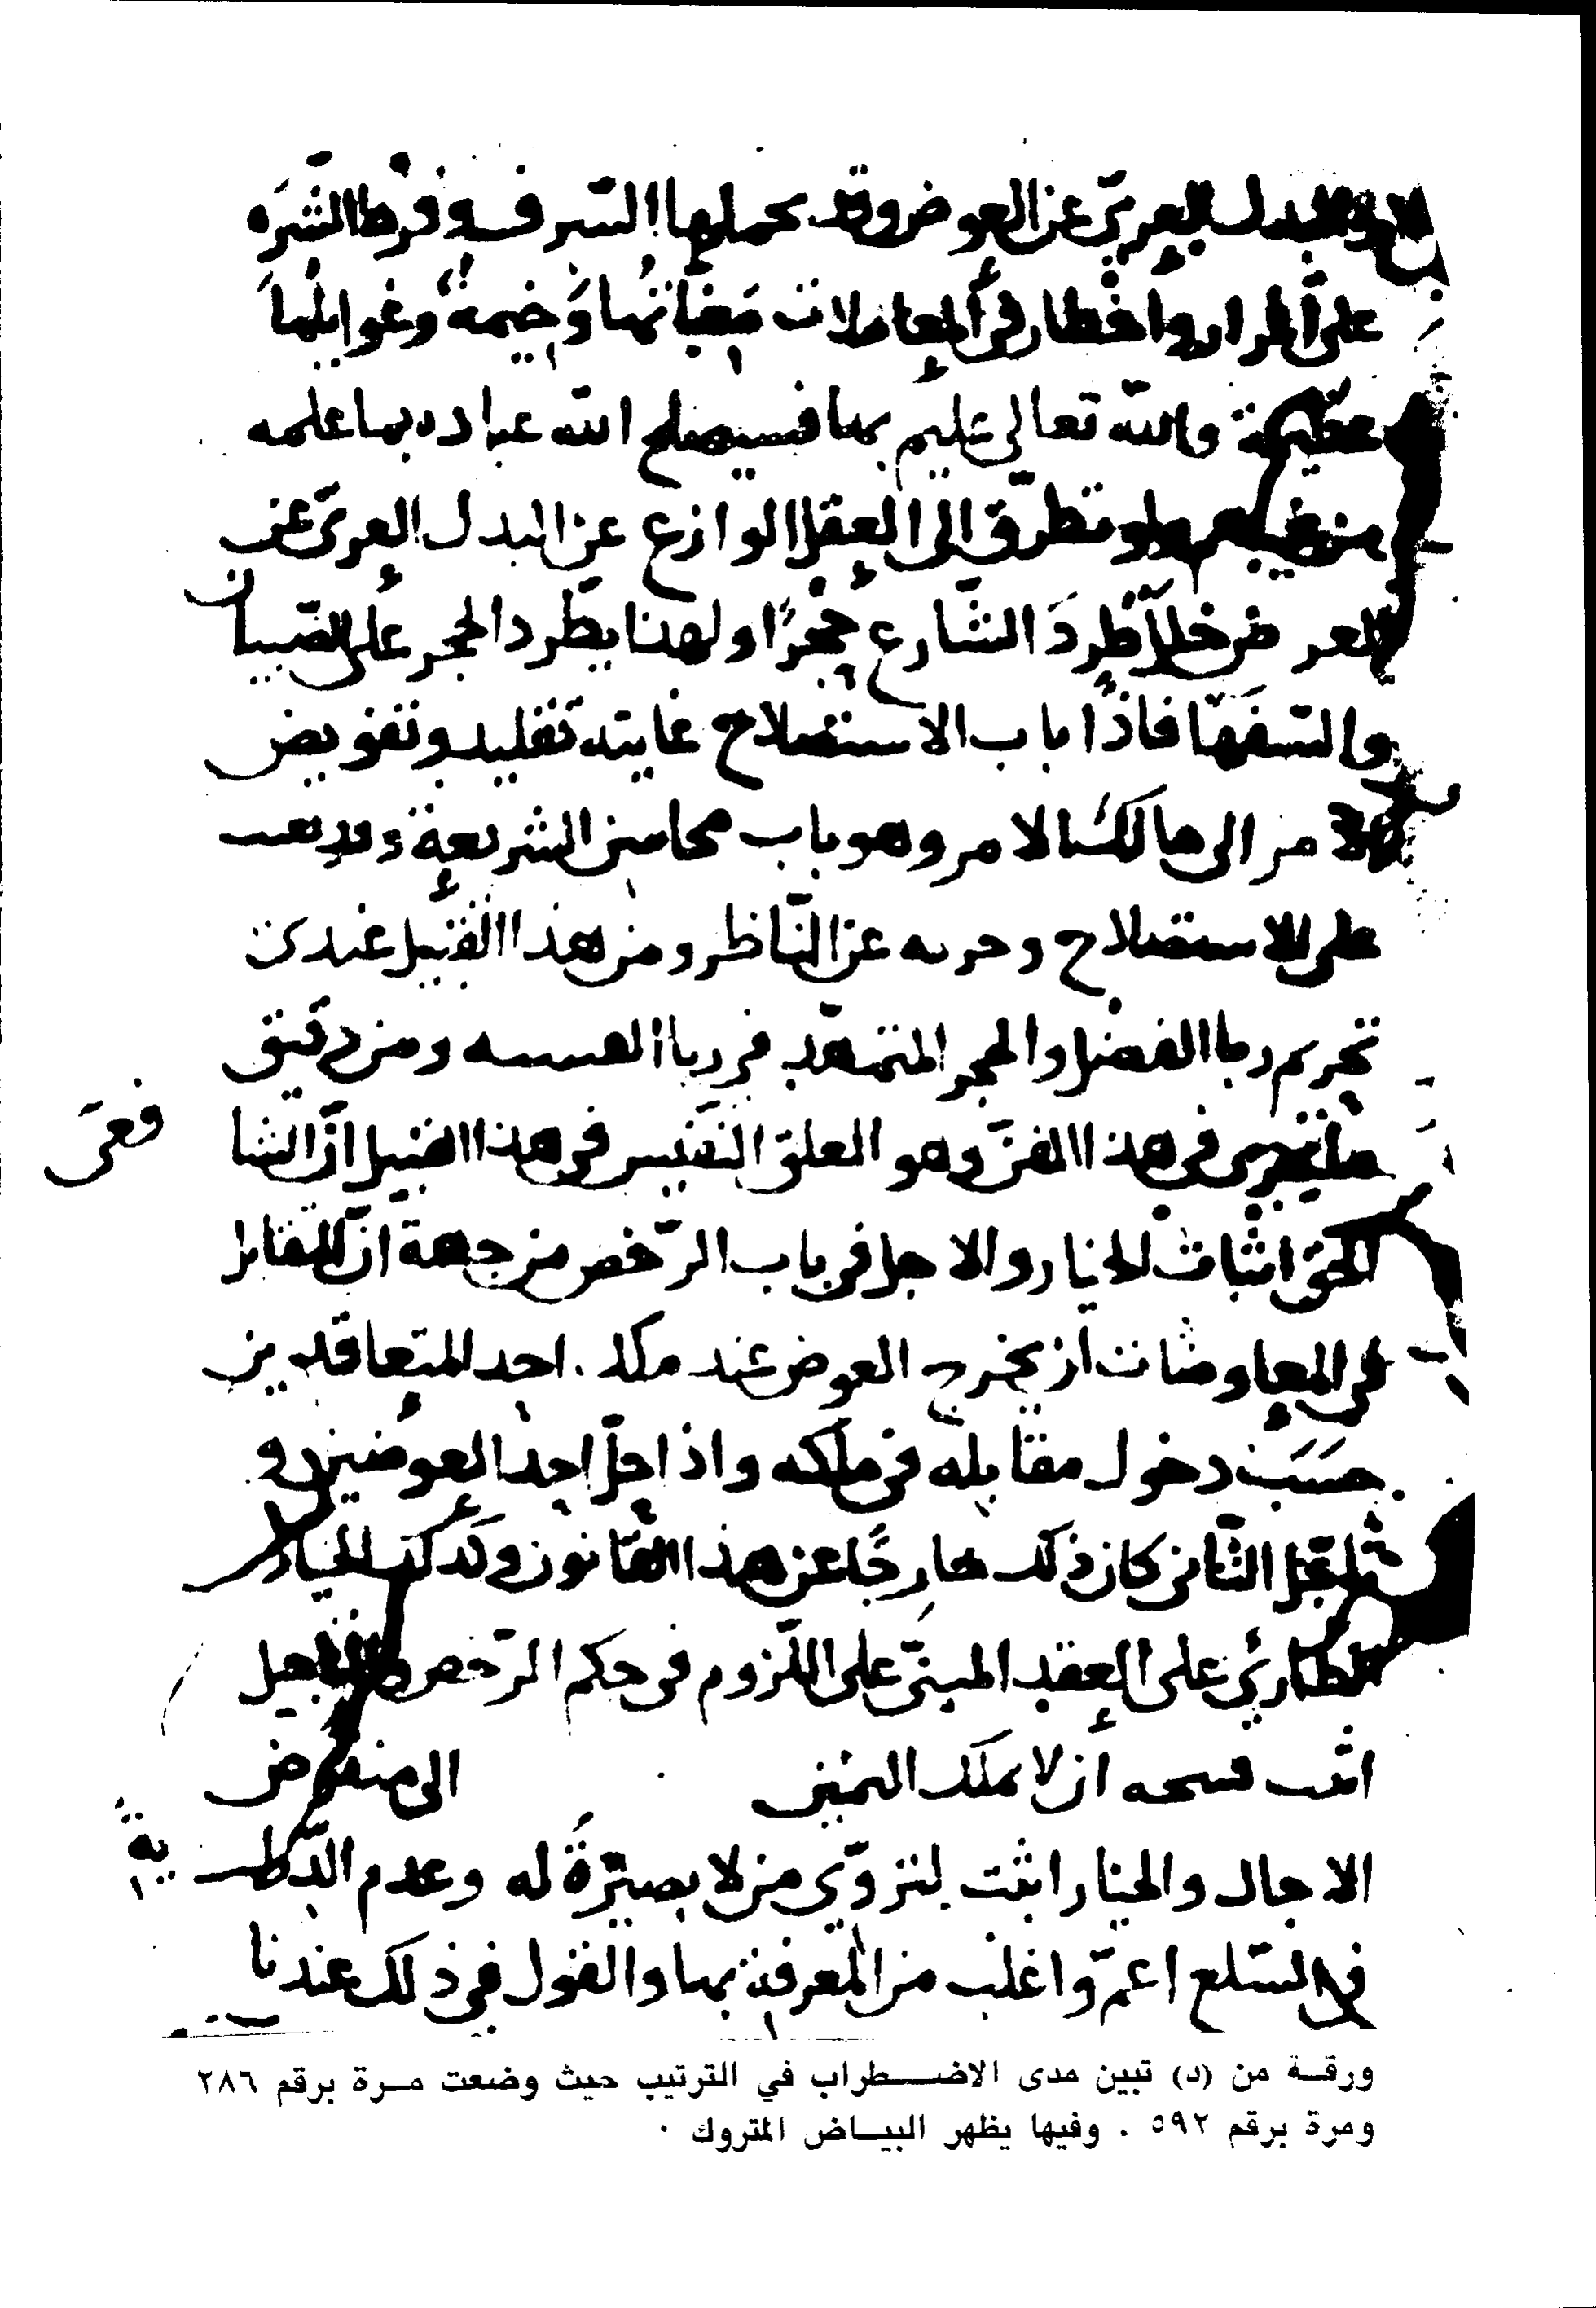 البدل العري عن العوض وقد يحملها السرف وفرط الشره
على المراد واخطار في المعاملات مغباتها وخيمة وغوايلها
عظيمة والله تعالى عليم بها فيستصلح الله عباده بما علمه
من غيبهم ولو تطرق الى العقل الوازع عن البدل العري عن
العوض خلل اطرد الشارع حجرا ولهذا يطرد الحجر على الصبيان
والسفها فاذا باب الاستصلاح غايته تقليد وتفويض
الامر الى مالك الامر وهو باب محاسن الشريعة
على الاستصلاح عن الناظر ومن هذا القبيل عندنا
تحريم ربا الفضل والحجر المتمهد في ربا النسيه ومن دقيق
ما يجري في هذا الفن وهو العلق النفيس في هذا القبيل ان الشا
فعي
الحق اثبات الخيار والاجل في باب الرخص من جهة ان التقابل
في المعاوضات ان يخرج العوض عند ملك احد المتعاقدين
حسب دخول مقابله في ملكه واذا اجل احد العوضين و
عجل الثاني كان ذلك خارجا عن هذا القانون وكذلك الخيار
الطاري على العقد المبني على اللزوم في حكم الرخص والتاجيل
اثبت فسحه ان لا يملك الثمن الى منقرض
الاجال والخيار اثبت لتروي من لا بصيرة له وعدم الدربة
في السلع اعم واغلب من المعرفة بها والقول في ذلك عندنا
ورقة من (د) تبين مدى الاضطراب في الترتيب حيث وضعت مرة برقم ٢٨٦
ومرة برقم ٥٩٢ . وفيها يظهر البياض المتروك .